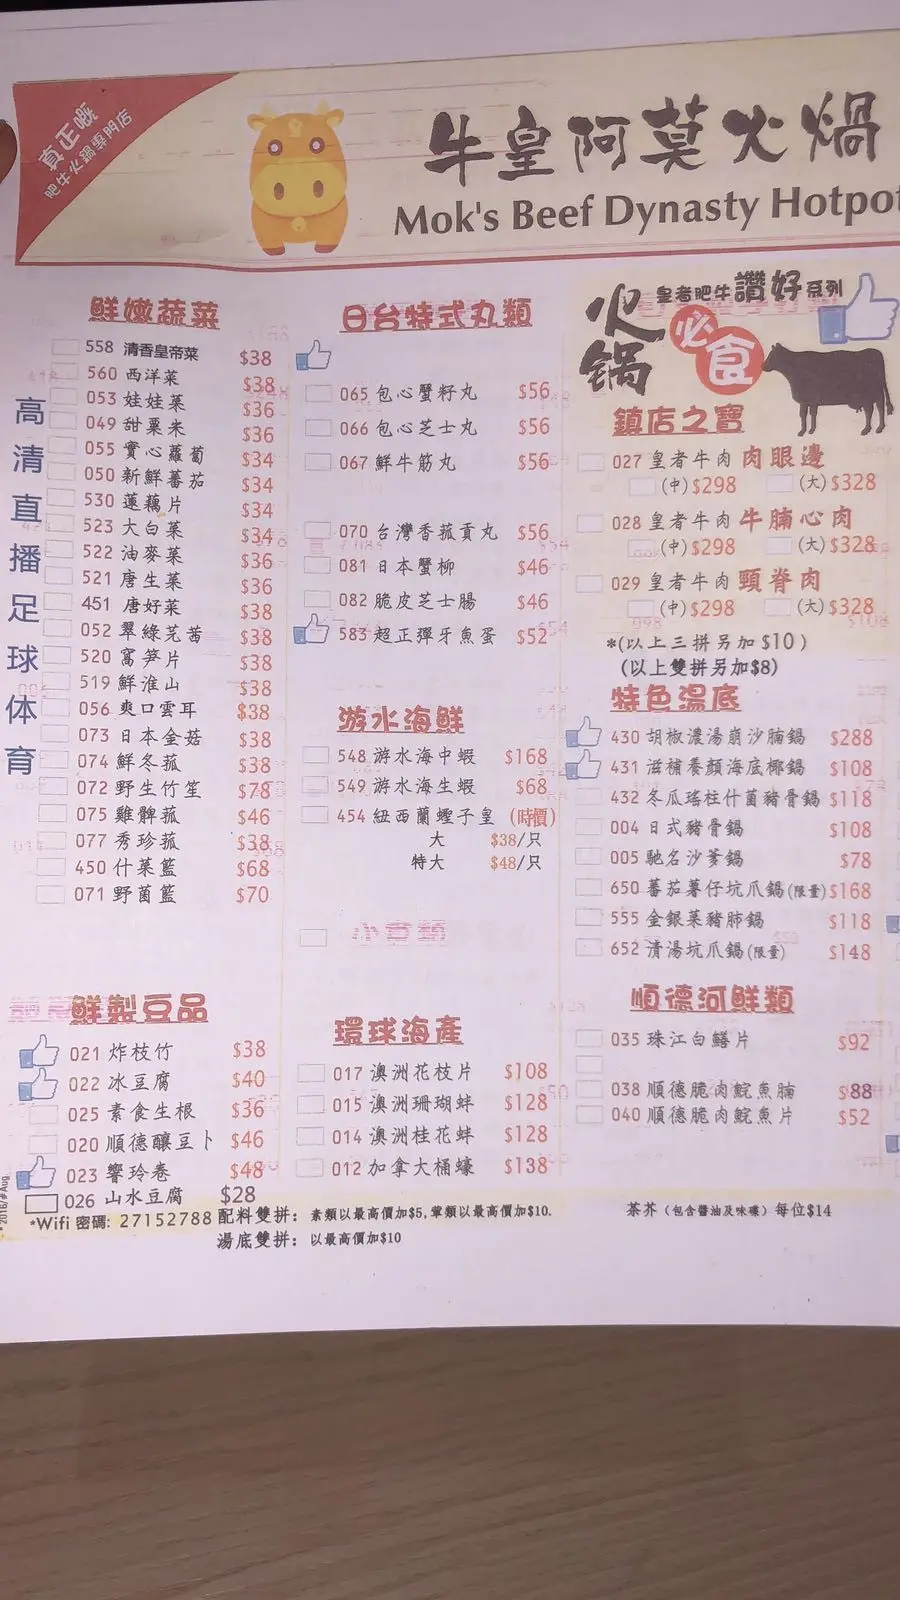 真正鄉
牛皇阿莫火煱
Mok's Beef Dynasty Hotpot
高清直播足球体育
鮮嫩蔬菜
558 清香皇帝菜 $38
560 西洋菜 $38
053 娃娃菜 $36
049 甜粟米 $36
055 實心蘿蔔 $34
050 新鮮蕃茄 $34
530 蓮藕片 $34
523 大白菜 $34
522 油麥菜 $36
521 唐生菜 $36
451 唐好菜 $38
052 翠綠芫茜 $38
520 萵笋片 $38
519 鮮淮山 $38
056 爽口雲耳 $38
073 日本金菇 $38
074 鮮冬菰 $38
072 野生竹笙 $78
075 雞髀菰 $46
077 秀珍菰 $38
450 什菜籃 $68
071 野菌籃 $70
鮮製豆品
021 炸枝竹 $38
022 冰豆腐 $40
025 素食生根 $36
020 順德釀豆卜 $46
023 響玲卷 $48
026 山水豆腐 $28
日台特式丸類
065 包心蟹籽丸 $56
066 包心芝士丸 $56
067 鮮牛筋丸 $56
070 台灣香菰貢丸 $56
081 日本蟹柳 $46
082 脆皮芝士腸 $46
583 超正彈牙魚蛋 $52
游水海鮮
548 游水海中蝦 $168
549 游水海生蝦 $68
454 紐西蘭蟶子皇 (時價)
大 $38/只
特大 $48/只
環球海產
017 澳洲花枝片 $108
015 澳洲珊瑚蚌 $128
014 澳洲桂花蚌 $128
012 加拿大桶蠔 $138
火锅
皇者肥牛讚好系列
必食
鎮店之寶
027 皇者牛肉 肉眼邊
(中)$298 (大)$328
028 皇者牛肉 牛腩心肉
(中)$298 (大)$328
029 皇者牛肉 頸脊肉
(中)$298 (大)$328
*(以上三拼另加$10)
(以上雙拼另加$8)
特色湯底
430 胡椒濃湯崩沙腩鍋 $288
431 滋補養顏海底椰鍋 $108
432 冬瓜瑤柱什菌豬骨鍋 $118
004 日式豬骨鍋 $108
005 馳名沙爹鍋 $78
650 蕃茄薯仔坑爪鍋(限量) $168
555 金銀菜豬肺鍋 $118
652 清湯坑爪鍋(限量) $148
順德河鮮類
035 珠江白鱔片 $92
038 順德脆肉鯇魚腩 $88
040 順德脆肉鯇魚片 $52
*Wifi 密碼: 27152788
配料雙拼: 素類以最高價加$5,葷類以最高價加$10.
湯底雙拼: 以最高價加$10
茶芥(包含醬油及味碟)每位$14